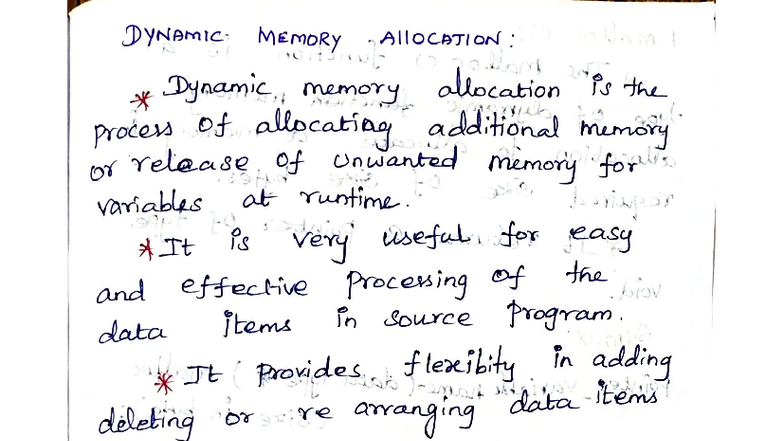 DYNAMIC MEMORY ALLOCATION :
* Dynamic memory allocation is the
process of allocating additional memory
or release of unwanted memory for
variables at runtime.
* It is very useful for easy
and effective processing of the
data items in source program.
* It provides flexibity in adding
deleting or re arranging data items